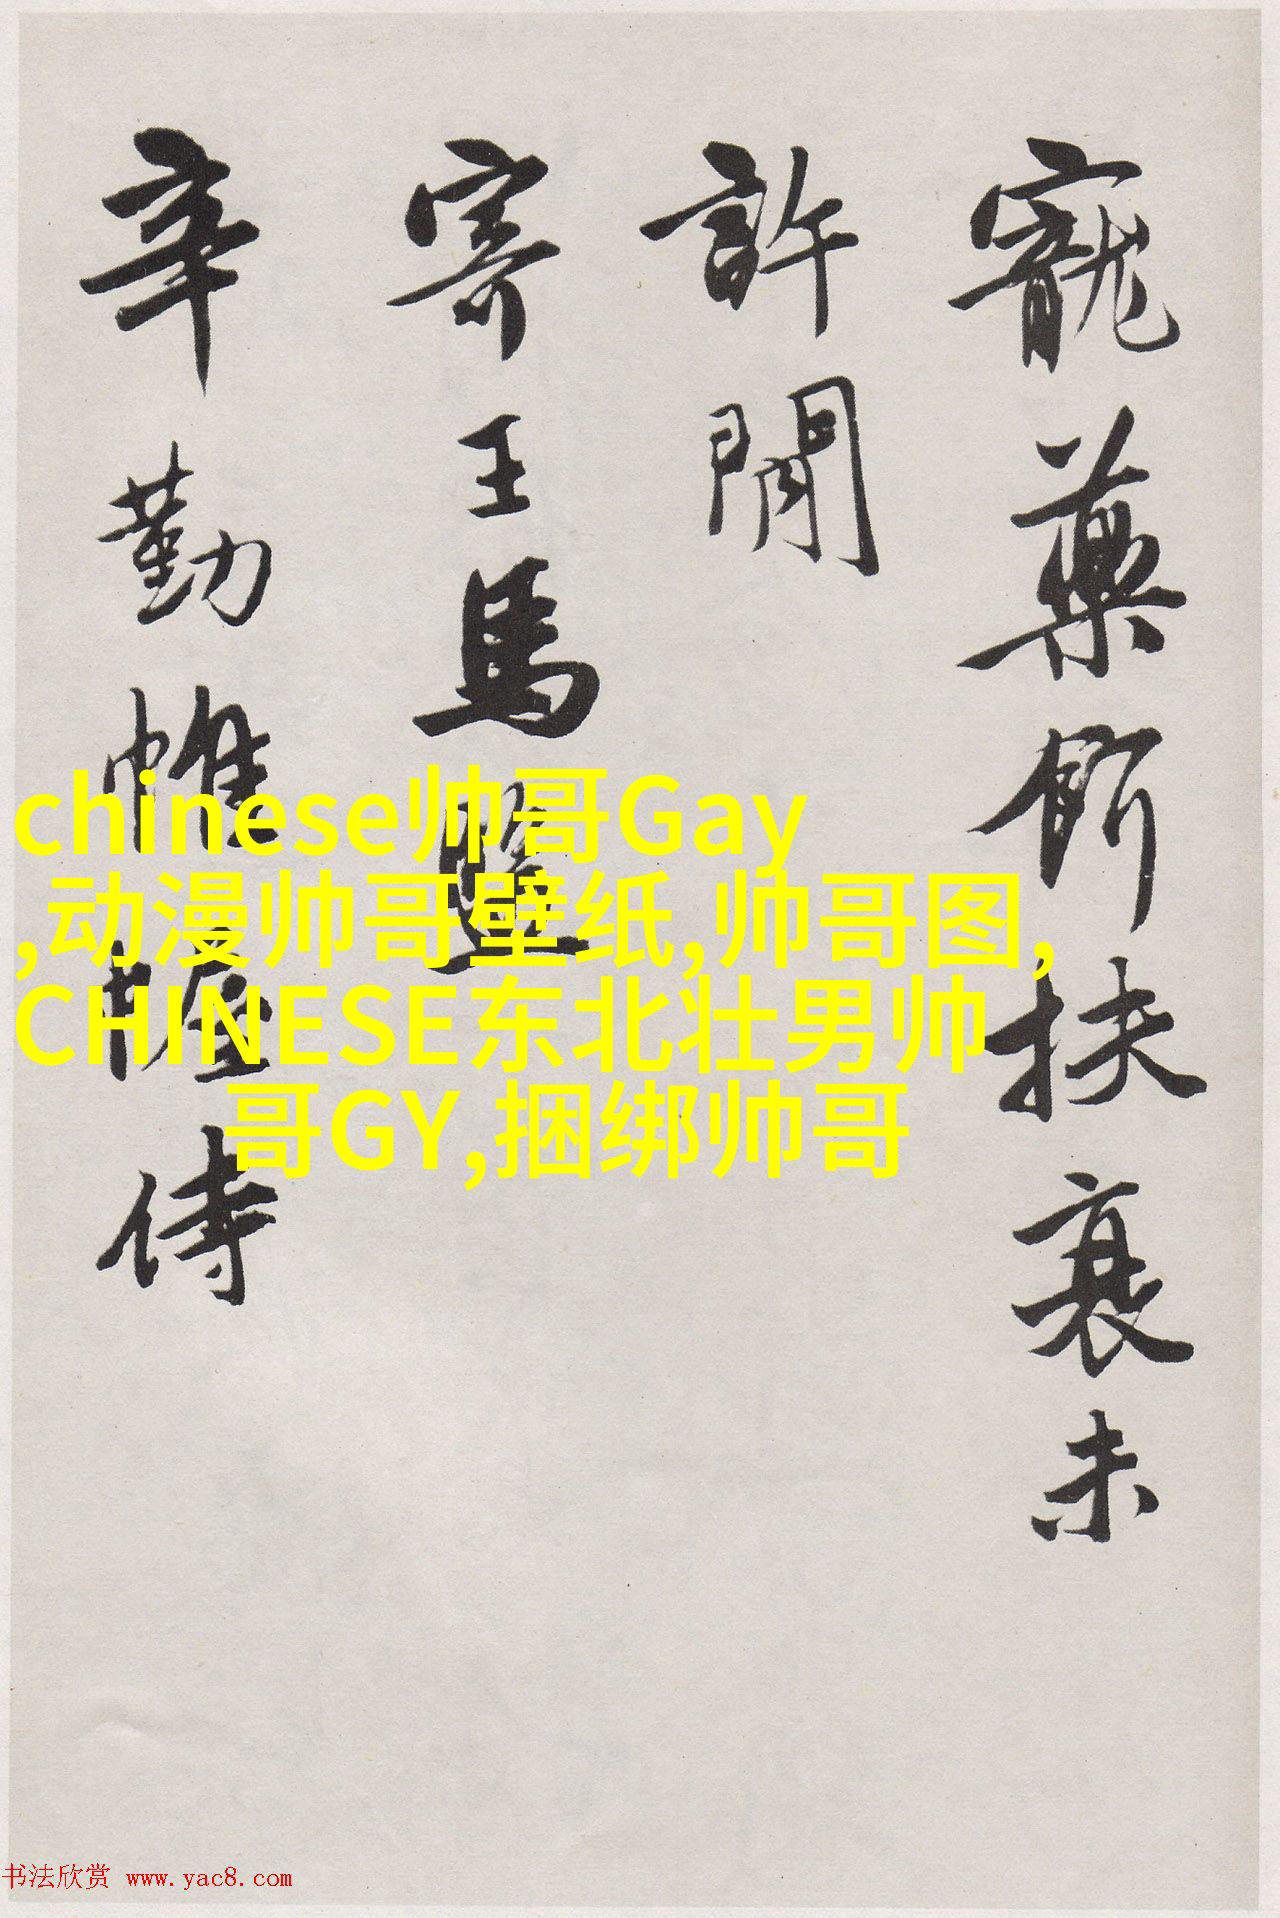 寵藥餌扶衰未
許閒
寄王馬監
辛勤帷幄侍
chinese帅哥Gay
,动漫帅哥壁纸,帅哥图,
CHINESE东北壮男帅
哥GY,捆绑帅哥
书法欣赏 www.yac8.com